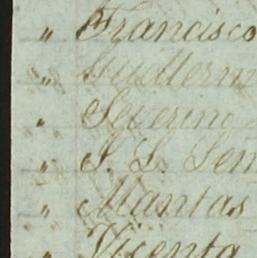 " Francisco
" Guillerm
" Severino
" S. L. Sem
" Mantas
" Vicenta